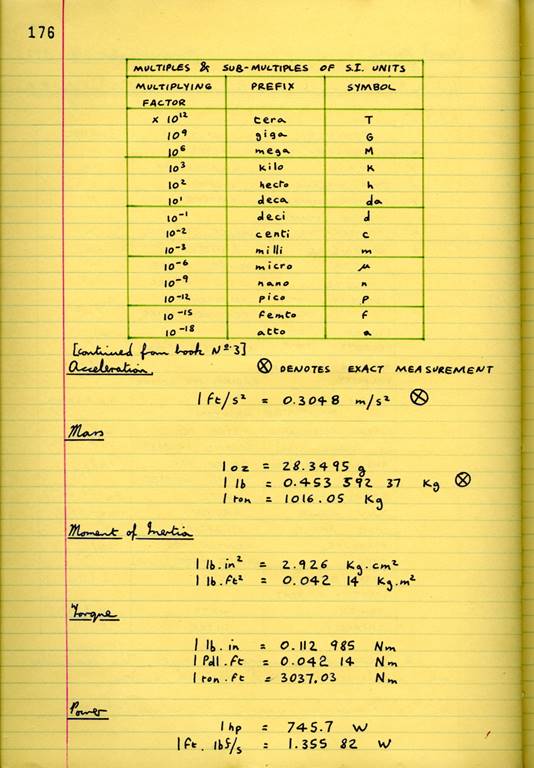 176
MULTIPLES & SUB-MULTIPLES OF S.I. UNITS
MULTIPLYING FACTOR PREFIX SYMBOL
× 10¹² tera T
10⁹ giga G
10⁶ mega M
10³ kilo K
10² hecto h
10¹ deca da
10⁻¹ deci d
10⁻² centi c
10⁻³ milli m
10⁻⁶ micro μ
10⁻⁹ nano n
10⁻¹² pico p
10⁻¹⁵ femto f
10⁻¹⁸ atto a
[continued from book Nº.3]
Acceleration. ⊗ DENOTES EXACT MEASUREMENT
1 ft/s² = 0.3048 m/s² ⊗
Mass
1 oz = 28.3495 g
1 lb = 0.453 592 37 Kg ⊗
1 ton = 1016.05 Kg
Moment of Inertia
1 lb.in² = 2.926 Kg.cm²
1 lb.ft² = 0.042 14 Kg.m²
Torque
1 lb.in = 0.112 985 Nm
1 Pdl.ft = 0.042 14 Nm
1 ton.ft = 3037.03 Nm
Power
1 hp = 745.7 W
1 ft. lbf/s = 1.355 82 W